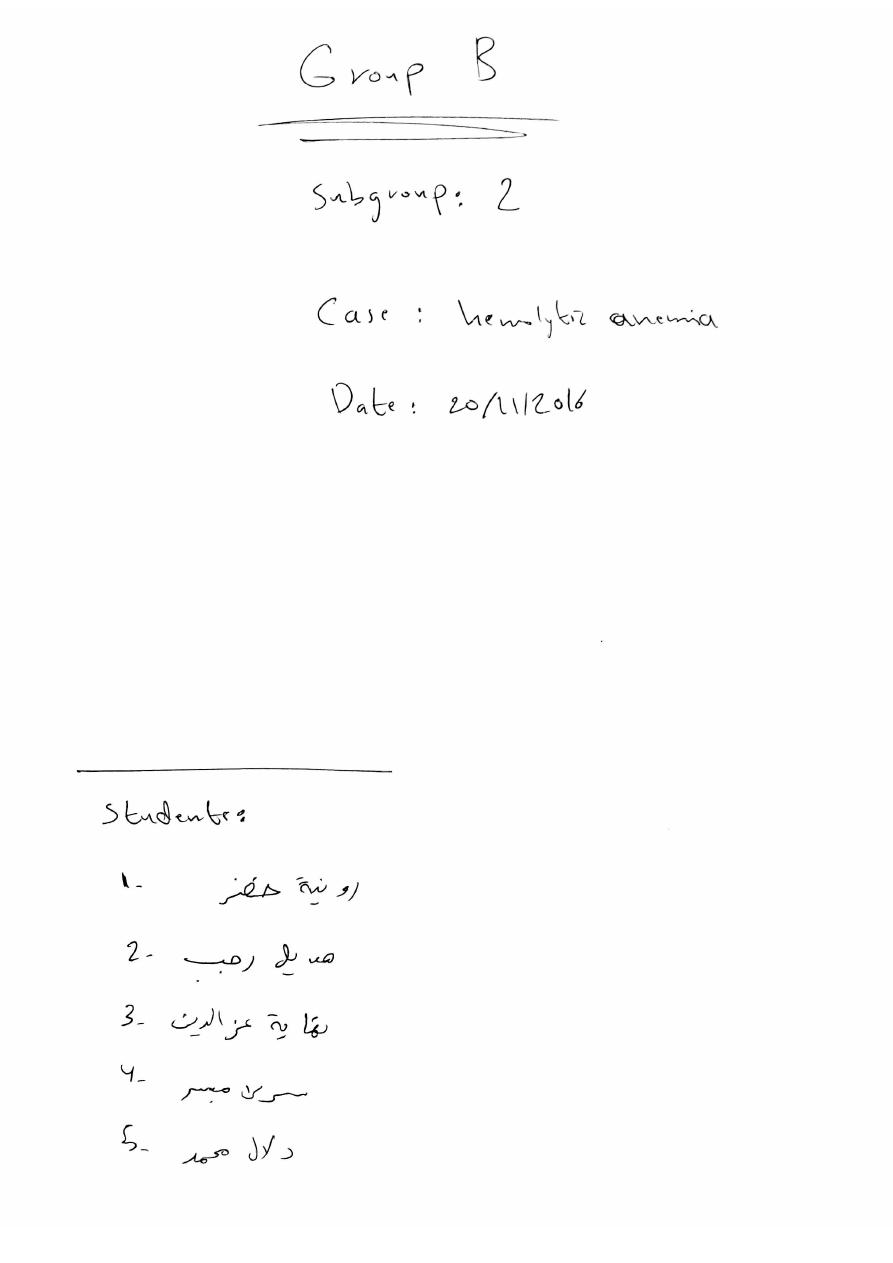 Group B
Subgroup: 2
Case: hemolytic anemia
Date: 20/11/2016
Students:
1- رونية خضر
2- هديل رجب
3- نهاية عز الدين
4- ميسر
5- دلال محمد